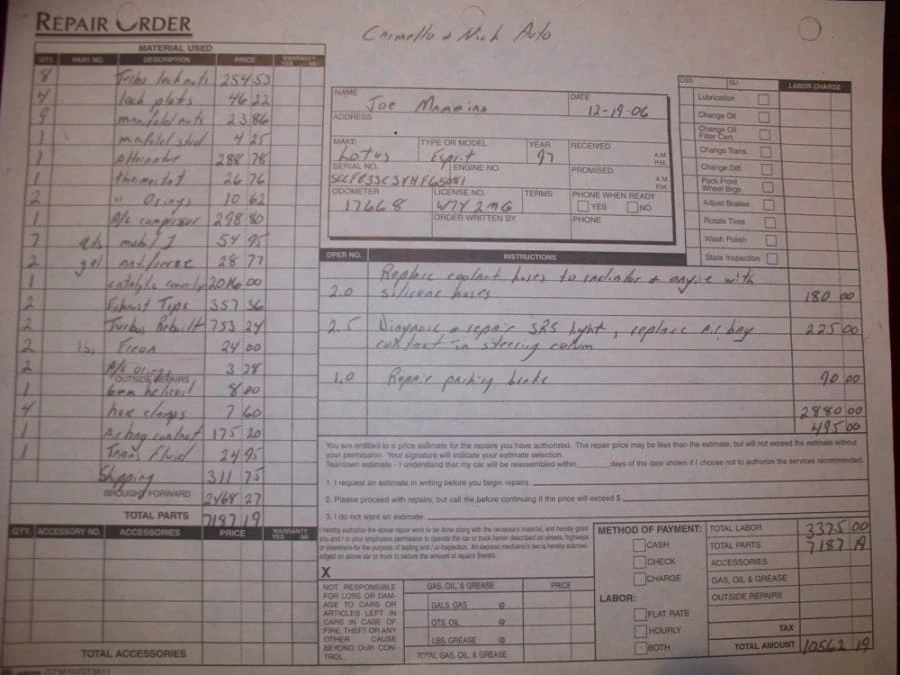 REPAIR ORDER
Carmello & Nick Auto
MATERIAL USED
QTY. PART NO. DESCRIPTION PRICE WARRANTY YES NO
8 Turbo lock nuts 254 53
4 lock plats 46 22
9 manifold nuts 23 86
1 manifold stud 4 25
1 Alternator 288 78
1 thermostat 26 76
2 " Orings 10 62
1 A/c compressor 298 80
7 qts mobil 1 54 95
2 gal antifreeze 28 77
1 catalytic 2016 00
2 Exhaust Tips 357 36
2 Turbos Rebuilt 753 24
2 Freon 24 00
2 A/c oring 3 28
OUTSIDE REPAIRS
1 6mm helicoil 8 00
4 hose clamps 7 60
1 Airbag contact 175 20
1 Trans Fluid 24 95
Shipping 311 75
BROUGHT FORWARD 2468 27
TOTAL PARTS 7187 19
QTY. ACCESSORY NO. ACCESSORIES PRICE WARRANTY YES NO
TOTAL ACCESSORIES
NAME Joe Mammina
DATE 12-19-06
ADDRESS
MAKE Lotus
TYPE OR MODEL Esprit
YEAR 97
RECEIVED A.M. P.M.
SERIAL NO.
ENGINE NO.
PROMISED A.M. P.M.
ODOMETER 17668
LICENSE NO.
TERMS
PHONE WHEN READY
YES NO
ORDER WRITTEN BY
PHONE
LABOR CHARGE
Lubrication
Change Oil
Change Oil Filter Cart.
Change Trans.
Change Diff.
Pack Front Wheel Brgs.
Adjust Brakes
Rotate Tires
Wash Polish
State Inspection
OPER NO. INSTRUCTIONS
Replace coolant hoses to radiator & engine with
2.0 silicone hoses 180 00
2.5 Diagnose & repair SRS light, replace Air bag 225 00
contact in steering colum
1.0 Repair parking brake 90 00
2880 00
495 00
You are entitled to a price estimate for the repairs you have authorized. The repair price may be less than the estimate, but will not exceed the estimate without
your permission. Your signature will indicate your estimate selection.
Teardown estimate - I understand that my car will be reassembled within ______ days of the date shown if I choose not to authorize the services recommended.
1. I request an estimate in writing before you begin repairs.
2. Please proceed with repairs, but call me before continuing if the price will exceed $
3. I do not want an estimate.
I hereby authorize the above repair work to be done along with the necessary material, and hereby grant
you and / or your employees permission to operate the car or truck herein described on streets, highways
or elsewhere for the purpose of testing and / or inspection. An express mechanic's lien is hereby acknowl-
edged on above car or truck to secure the amount of repairs thereto.
X
NOT RESPONSIBLE
FOR LOSS OR DAM-
AGE TO CARS OR
ARTICLES LEFT IN
CARS IN CASE OF
FIRE, THEFT OR ANY
OTHER CAUSE
BEYOND OUR CON-
TROL
GAS, OIL & GREASE PRICE
GALS. GAS @
QTS. OIL @
LBS. GREASE @
TOTAL GAS, OIL & GREASE
METHOD OF PAYMENT:
CASH
CHECK
CHARGE
LABOR:
FLAT RATE
HOURLY
BOTH
TOTAL LABOR 3375 00
TOTAL PARTS 7187 19
ACCESSORIES
GAS, OIL & GREASE
OUTSIDE REPAIRS
TAX
TOTAL AMOUNT 10562 19